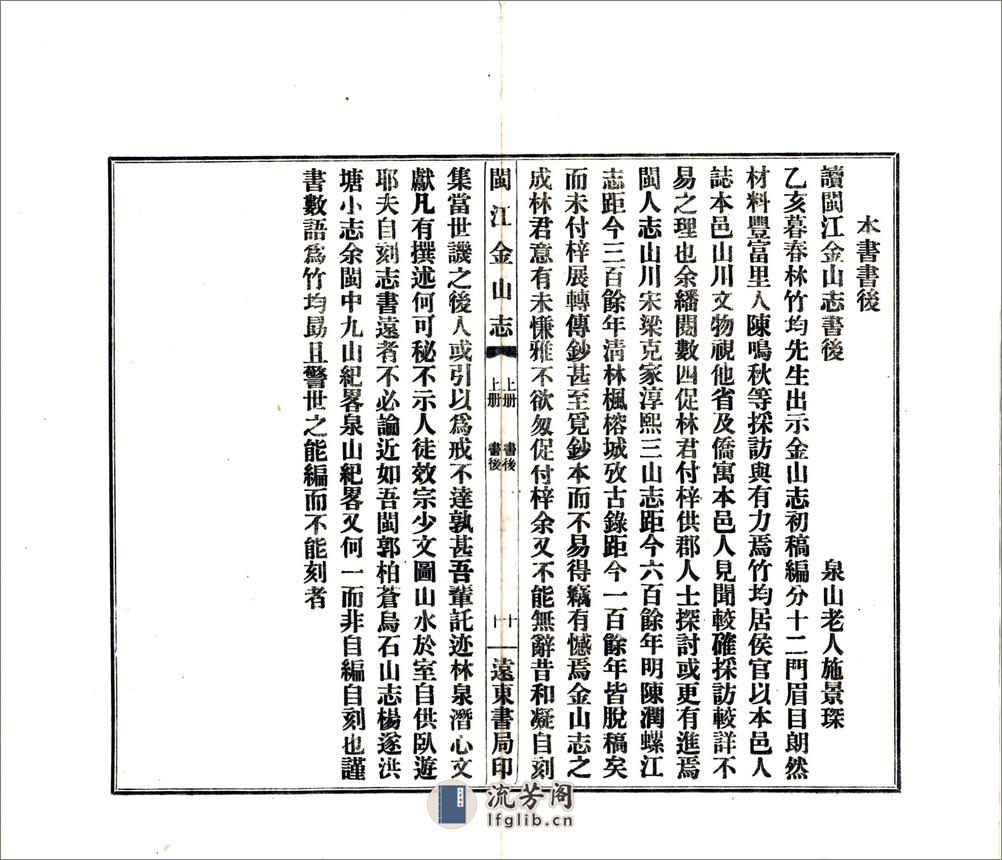 本書書後
讀閩江金山志書後　泉山老人施景琛
乙亥暮春林竹均先生出示金山志初稿編分十二門眉目朗然
材料豐富里人陳鳴秋等採訪與有力焉竹均居侯官以本邑人
誌本邑山川文物視他省及僑寓本邑人見聞較確採訪較詳不
易之理也余繙閱數四促林君付梓供郡人士探討或更有進焉
閩人志山川宋梁克家淳熙三山志距今六百餘年明陳潤螺江
志距今三百餘年淸林楓榕城攷古錄距今一百餘年皆脫稿矣
而未付梓展轉傳鈔甚至覓鈔本而不易得竊有憾焉金山志之
成林君意有未慊雅不欲匆促付梓余又不能無辭昔和凝自刻
閩江金山志　上册　書後　十　遠東書局印
上册　書後　十
集當世譏之後人或引以爲戒不達孰甚吾輩託迹林泉潛心文
獻凡有撰述何可秘不示人徒效宗少文圖山水於室自供臥遊
耶夫自刻志書遠者不必論近如吾閩郭柏蒼烏石山志楊遂洪
塘小志余閩中九山紀畧泉山紀畧又何一而非自編自刻也謹
書數語爲竹均勗且警世之能編而不能刻者
流芳阁
lfglib.cn